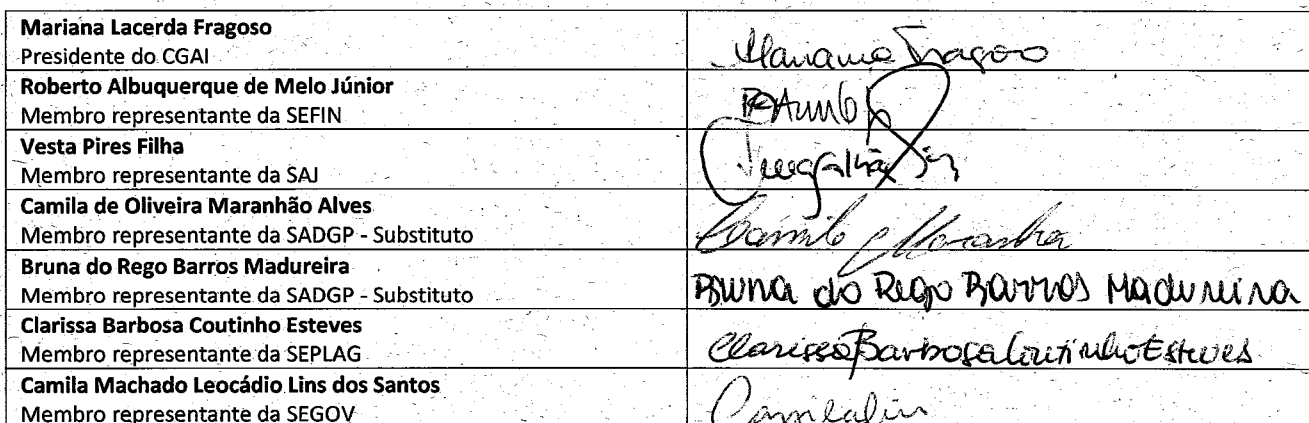 Mariana Lacerda Fragoso
Presidente do CGAI
Mariana Fragoso
Roberto Albuquerque de Melo Júnior
Membro representante da SEFIN
Vesta Pires Filha
Membro representante da SAJ
Camila de Oliveira Maranhão Alves
Membro representante da SADGP - Substituto
Camila Maranhão
Bruna do Rego Barros Madureira
Membro representante da SADGP - Substituto
Bruna do Rego Barros Madureira
Clarissa Barbosa Coutinho Esteves
Membro representante da SEPLAG
Clarissa Barbosa Coutinho Esteves
Camila Machado Leocádio Lins dos Santos
Membro representante da SEGOV